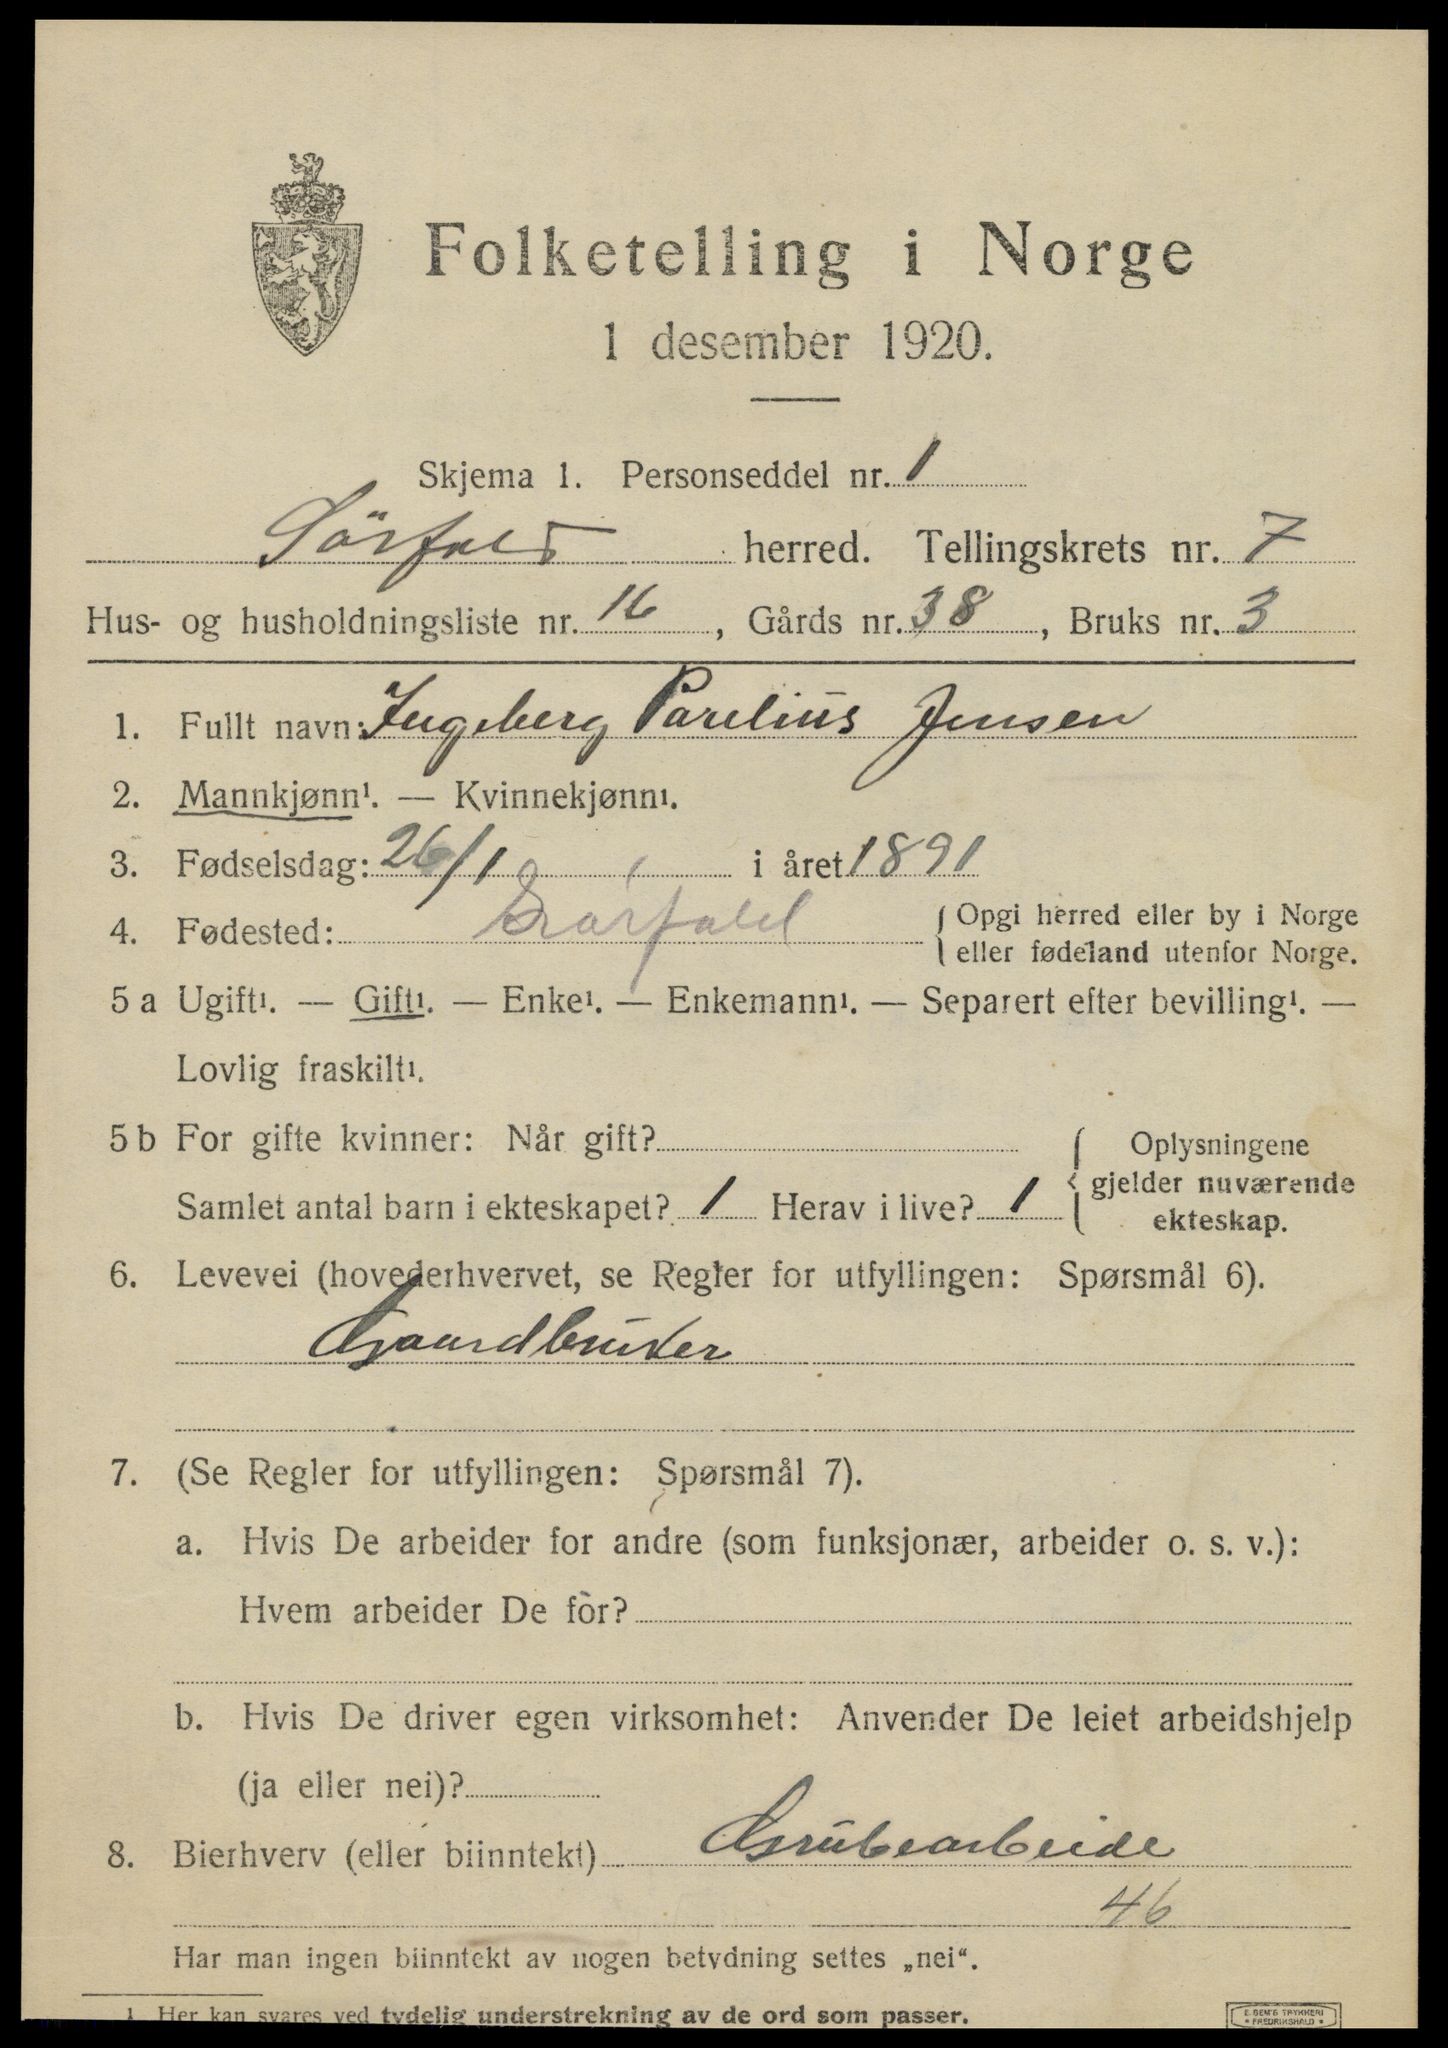 Folketelling i Norge
1 desember 1920.
Skjema 1. Personseddel nr. 1
Sörfold herred. Tellingskrets nr. 7
Hus- og husholdningsliste nr. 16, Gårds nr. 38, Bruks nr. 3
1. Fullt navn: Ingeberg Parelius Jensen
2. Mannkjønn¹. — Kvinnekjønn¹.
3. Fødselsdag: 26/1 i året 1891
4. Fødested: Sørfold { Opgi herred eller by i Norge
eller fødeland utenfor Norge.
5 a Ugift¹. — Gift¹. — Enke¹. — Enkemann¹. — Separert efter bevilling¹. —
Lovlig fraskilt¹.
5 b For gifte kvinner: Når gift? { Oplysningene
gjelder nuværende
Samlet antal barn i ekteskapet? 1 Herav i live? 1 ekteskap.
6. Levevei (hovederhvervet, se Regler for utfyllingen: Spørsmål 6).
Gaardbruker
7. (Se Regler for utfyllingen: Spørsmål 7).
a. Hvis De arbeider for andre (som funksjonær, arbeider o. s. v.):
Hvem arbeider De for?
b. Hvis De driver egen virksomhet: Anvender De leiet arbeidshjelp
(ja eller nei)?
8. Bierhverv (eller biinntekt) Grubearbeide
46
Har man ingen biinntekt av nogen betydning settes „nei“.
1 Her kan svares ved tydelig understrekning av de ord som passer.
E. SEM'S TRYKKERI
• FREDRIKSHALD •